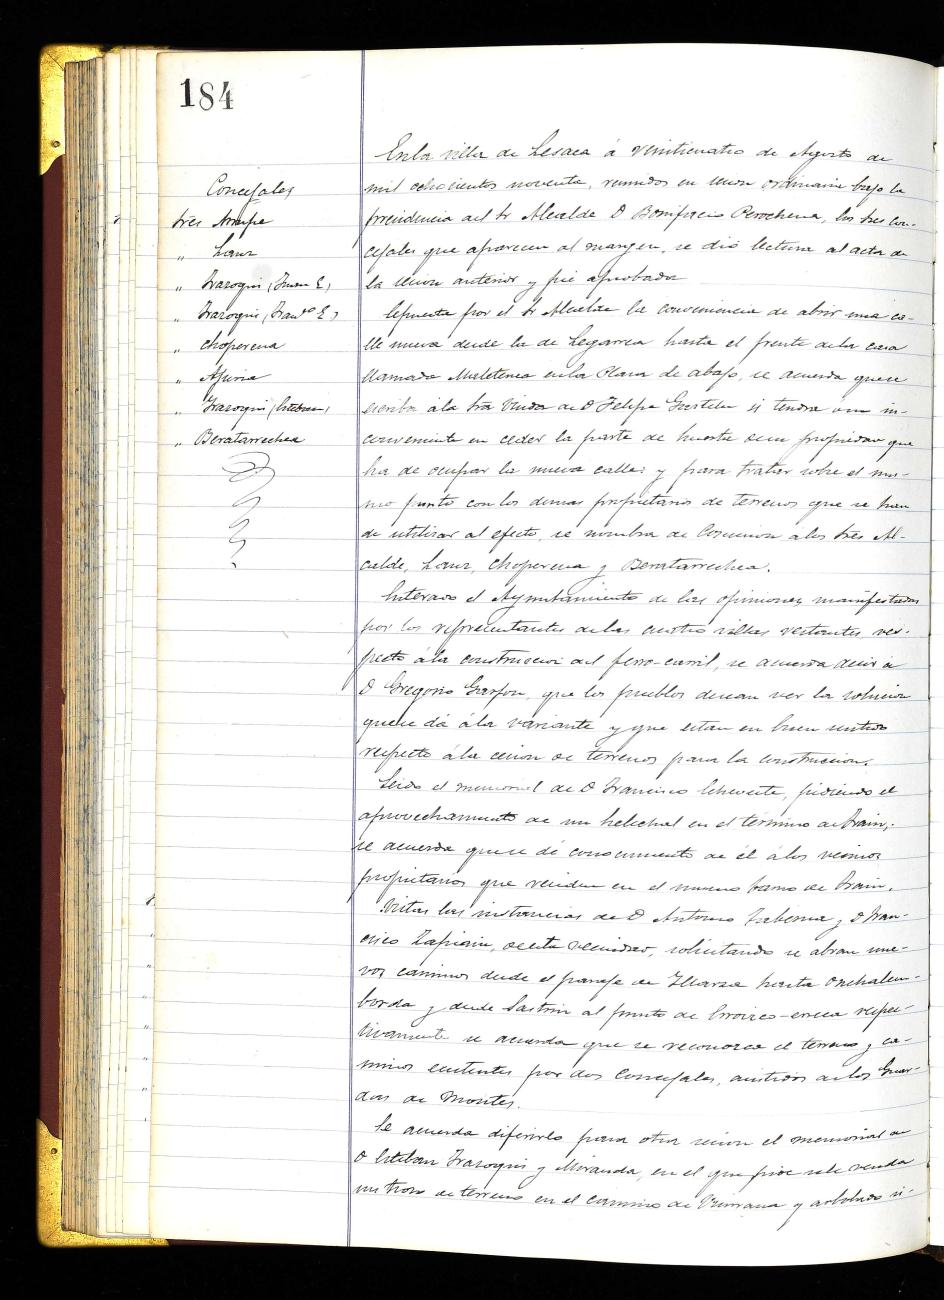 184
Concejales
Sres Arrupe
„ Lanz
„ Irazoqui (Juan E)
„ Irazoqui (Franco E)
„ Choperena
„ Apiria
„ Irazoqui (Esteban)
„ Beratarrechea
En la villa de Lesaca á veinticuatro de Agosto de
mil ochocientos noventa, reunidos en sesion ordinaria bajo la
presidencia del Sr Alcalde D Bonifacio Perochena, los Sres con-
cejales que aparecen al margen, se dió lectura al acta de
la sesion anterior y fué aprobada
Espuesta por el Sr Alcalde la conveniencia de abrir una ca-
lle nueva desde la de Legarrea hasta el frente de la casa
llamada Maletenea en la Plaza de abajo, se acuerda que se
escriba á la Sra Viuda de D Felipe si tendra in-
conveniente en ceder la parte de huerta de su propiedad que
ha de ocupar la nueva calle; y para tratar sobre el mis-
mo punto con los demas propietarios de terrenos que se han
de utilizar al efecto, se nombra de Comision a los Sres Al-
calde, Lanz, Choperena y Beratarrechea.
Enterado el Ayuntamiento de las opiniones manifestadas
por los representantes de las cuatro villas restantes res-
pecto á la construccion del ferro-carril, se acuerda decir a
D Gregorio que los pueblos desean ver la solucion
que se dá á la variante y que estan en buen sentido
respecto á la cesion de terrenos para la construccion.
Leido el memorial de D Francisco Echeveste, pidiendo el
aprovechamiento de un helechal en el término de Frain,
se acuerda que se dé conocimiento de él á los vecinos
propietarios que residen en el mismo barrio de Frain.
Vistas las instancias de D Antonio Taberna y D Fran-
cisco Tapiain, de esta vecindad, solicitando se abran nue-
vos caminos desde el paraje de Illarza hasta Onchalen-
borda y desde Sastrin al punto de Erroizco-erreca respec-
tivamente se acuerda que se reconozca el terreno y ca-
minos existentes por dos Concejales, asistidos de los Guar-
das de Montes.
Se acuerda diferirlo para otra sesion el memorial de
D Esteban Irazoqui y Miranda, en el que pide se le venda
un trozo de terreno en el camino de y arbolado si-